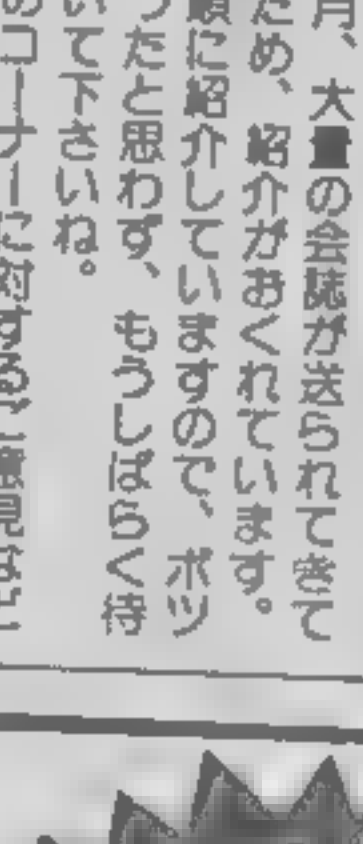 月、大量の会誌が送られてきて
ため、紹介がおくれています。
順に紹介していますので、ボツ
ったと思わず、もうしばらく待
いて下さいね。
のコーナーに対するご意見など